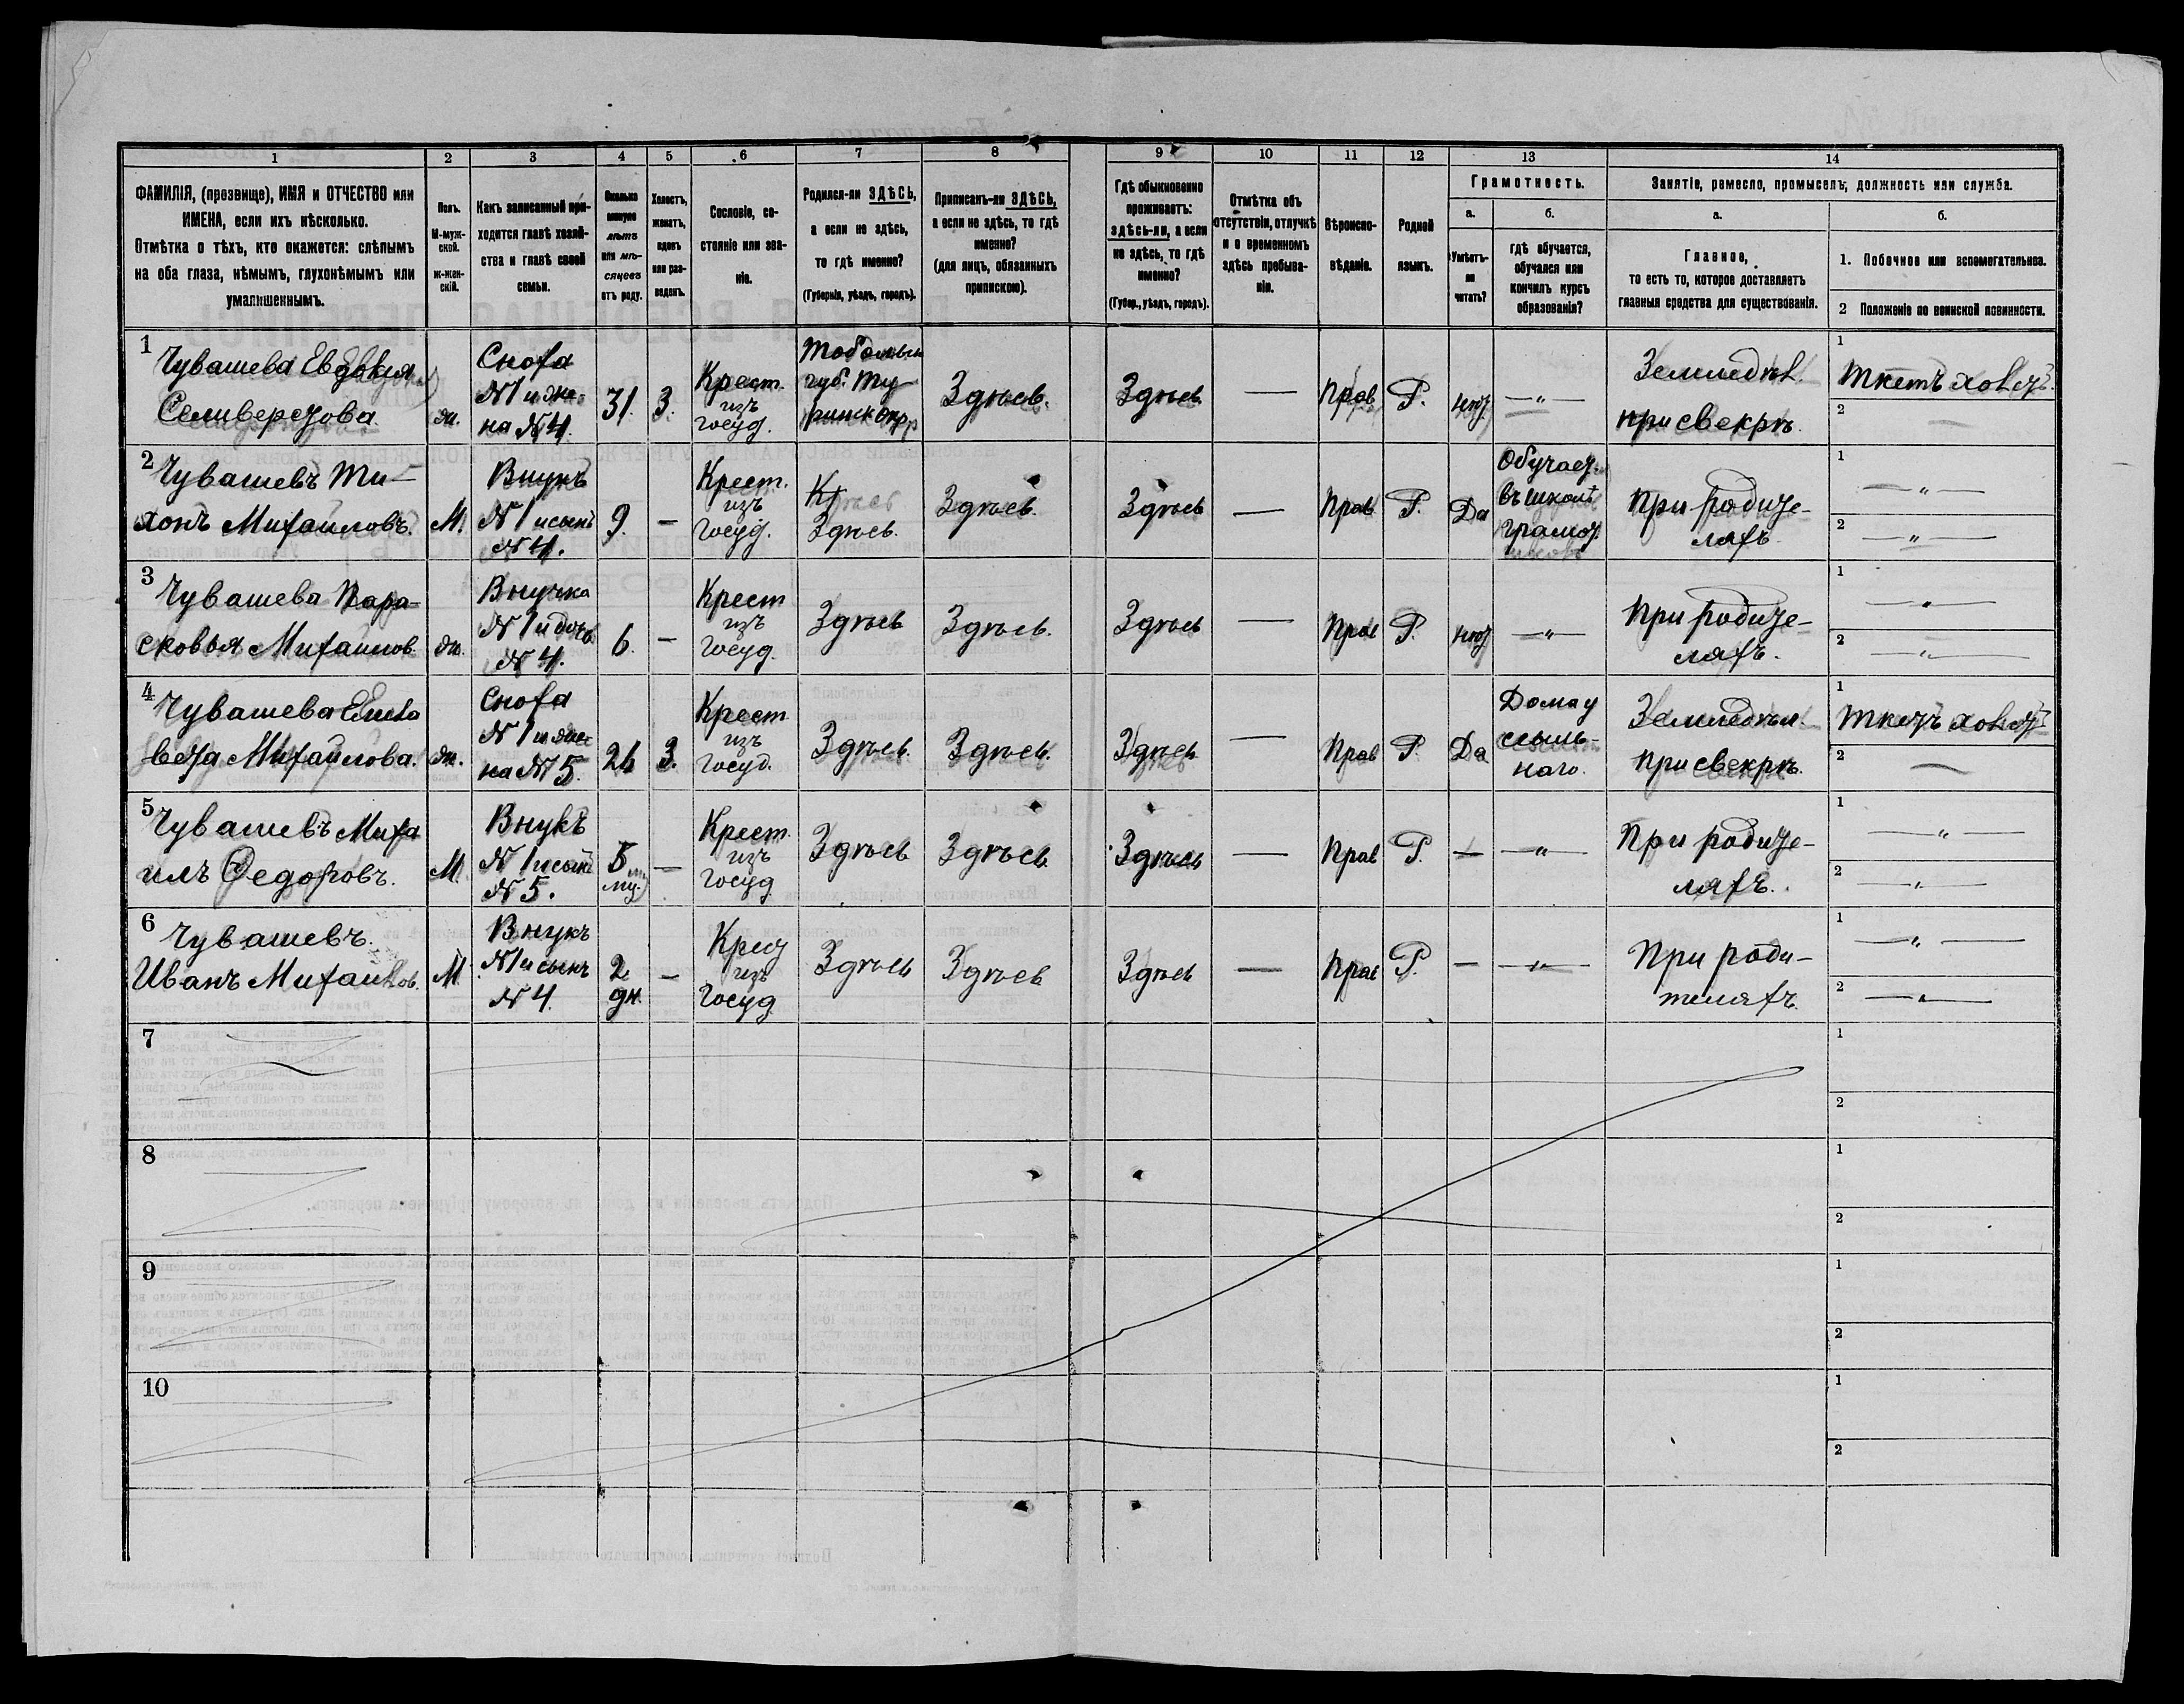 1 2 3 4 5 6 7 8 9 10 11 12 13 14
ФАМИЛІЯ, (прозвище), ИМЯ и ОТЧЕСТВО или
ИМЕНА, если ихъ нѣсколько.
Отмѣтка о тѣхъ, кто окажется: слѣпымъ
на оба глаза, нѣмымъ, глухонѣмымъ или
умалишеннымъ.
Полъ.
М-муж-
ской.
ж-жен-
скій.
Какъ записанный при-
ходится главѣ хозяй-
ства и главѣ своей
семьи.
Сколько
минуло
лѣтъ
или мѣ-
сяцевъ
отъ роду.
Холостъ,
женатъ,
вдовъ
или раз-
веденъ.
Сословіе, со-
стояніе или зва-
ніе.
Родился-ли ЗДѢСЬ,
а если не здѣсь,
то гдѣ именно?
(Губернія, уѣздъ, городъ).
Приписанъ-ли ЗДѢСЬ,
а если не здѣсь, то гдѣ
именно?
(для лицъ, обязанныхъ
припискою).
Гдѣ обыкновенно
проживаетъ:
здѣсь-ли, а если
не здѣсь, то гдѣ
именно?
(Губер., уѣздъ, городъ).
Отмѣтка объ
отсутствіи, отлучкѣ
и о временномъ
здѣсь пребыва-
ніи.
Вѣроиспо-
вѣданіе.
Родной
языкъ.
Грамотность.
а.
Умѣетъ-
ли
читать?
б.
гдѣ обучается,
обучался или
кончилъ курсъ
образованія?
Занятіе, ремесло, промыселъ, должность или служба.
а.
Главное,
то есть то, которое доставляетъ
главныя средства для существованія.
б.
1. Побочное или вспомогательное.
2 Положеніе по воинской повинности.
1
Чувашева Евдокия
Селиверстова.
ж.
Сноха
№1 и же-
на №4.
31.
З.
Крест.
изъ
госуд.
Тобольск
губ. Ту-
ринск окр
Здѣсь.
Здѣсь
—
Прав
Р.
нѣт
— " —
Земледѣл.
при свекрѣ.
1
Ткетъ холстъ
2
—
2
Чувашевъ Ти-
хонъ Михаиловъ.
М.
Внукъ
№1 и сынъ
№4.
9.
—
Крест.
изъ
госуд.
Здѣсь.
Здѣсь.
Здѣсь
—
Прав
Р.
Да
Обучает.
въ школѣ
грамот.
При родите-
ляхъ
1
— " —
2
— " —
3
Чувашева Пара-
сковья Михаилов.
ж.
Внучка
№1 и дочь
№4.
6.
—
Крест
изъ
госуд.
Здѣсь
Здѣсь.
Здѣсь
—
Прав
Р.
нѣт
— " —
При родите-
ляхъ.
1
— " —
2
— " —
4
Чувашева Елиса
вета Михайлова.
ж.
Сноха
№1 и же-
на №5.
26
З.
Крест
изъ
госуд.
Здѣсь.
Здѣсь.
Здѣсь
—
Прав
Р.
Да
Дома у
ссыль-
наго.
Земледѣл.
при свекрѣ.
1
Ткетъ холстъ
2
—
5
Чувашевъ Миха
илъ Федоровъ.
М.
Внукъ
№1 и сынъ
№5.
5
—
Крест.
изъ
госуд
Здѣсь
Здѣсь
Здѣсь
—
Прав
Р.
—
— " —
При родите-
ляхъ.
1
— " —
2
— " —
6
Чувашевъ.
Иванъ Михаилов.
М
Внукъ
№1 и сынъ
№4.
2
дн.
—
Крест
изъ
госуд
Здѣсь
Здѣсь
Здѣсь
—
Прав
Р.
—
— " —
При роди-
теляхъ.
1
— " —
2
— " —
7
1
2
8
1
2
9
1
2
10
1
2